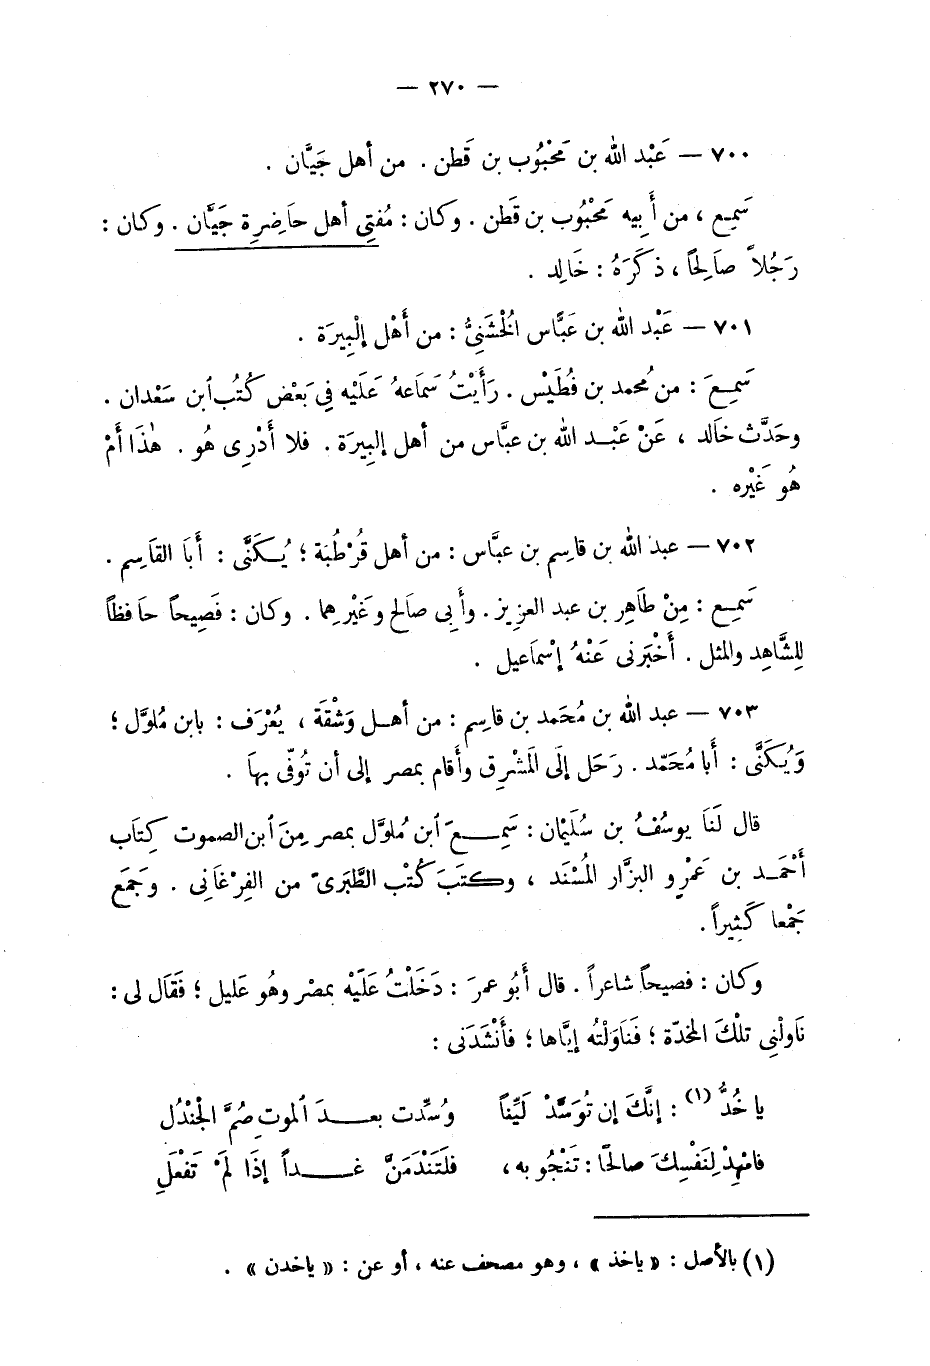 — ٢٧٠ —
٧٠٠ — عَبْد الله بن مَحْبُوب بن قَطن . من أهل جَيَّان .
سَمِع ، من أَبِيه مَحْبُوب بن قَطن . وكان : مُفتِي أهل حَاضِرِة جَيَّان . وكان :
رَجُلاً صَالِحًا ، ذكَرَهُ : خَالِد .
٧٠١ — عَبْد الله بن عَبَّاس الْخُشَنِيُّ : من أَهْل إلْبِيرَة .
سَمِعَ : من مُحمد بن فُطَيْس . رَأَيْتُ سَمَاعهُ عَلَيْه فِي بَعْض كُتُب ٱبن سَعْدان .
وحَدَّث خَالد ، عَنْ عَبْد الله بن عبَّاس من أهل إلبِيرَة . فلا أَدْرِى هُو . هٰذَا أَمْ
هُو غَيْره .
٧٠٢ — عبد الله بن قاسِم بن عبَّاس : من أهل قُرْطُبَة ؛ يُكَنَّى : أَبَا القَاسِم .
سَمِع : مِنْ طَاهِر بن عبد العزِيز . وأَبِى صَالح وغَيْرهِما . وكان : فَصِيحاً حَافظاً
لِلشَّاهِد والمثل . أَخْبَرنى عَنْهُ إسْماَعيل .
٧٠٣ — عبد الله بن مُحَمد بن قاسِم : من أهل وَشْقَة ، يُعْرَف : بابن مُلوَّل ؛
وَيُكَنَّى : أَبا مُحَمّد . رَحَل إلَى المَشْرِق وأَقام بمصر إلى أن تُوفّى بهاَ .
قال لَنَا يوسُفُ بن سُلَيْمَان : سَمِعَ ٱبن مُلوَّل بمصر مِنَ ٱبن الصموت كِتَاب
أَحْمَد بن عَمْرٍو البزَّار المُسْنَد ، وكتَبَ كُتْب الطَّبَرىّ من الفِرْغَانِى . وجَمَع
جَمْعا كَثِيراً .
وكان : فصيحاً شاعراً . قال أَبُو عمرَ : دَخَلْتُ عَلَيْه بمصْر وهُو عَليل ؛ فَقَال لى :
نَاولْنِي تلْكَ المخدّة ؛ فَنَاوَلْتُه إيَّاها ؛ فأَنْشَدَنى :
يا خُدُّ (١) : إنَّكَ إن تُوَسَّدْ لَيِّناً وُسِّدت بعدَ ٱلموتِ صُمَّ الْجَنْدُل
فامْهِدْ لِنَفْسِكَ صالحًا : تَنْجُو به ، فلَتَنْدَمَنَّ غداً إذَا لَمْ تَفْعَلِ
(١) بالأصل : « ياخذ » ، وهو مصحف عنه ، أو عن : « ياخدن » .